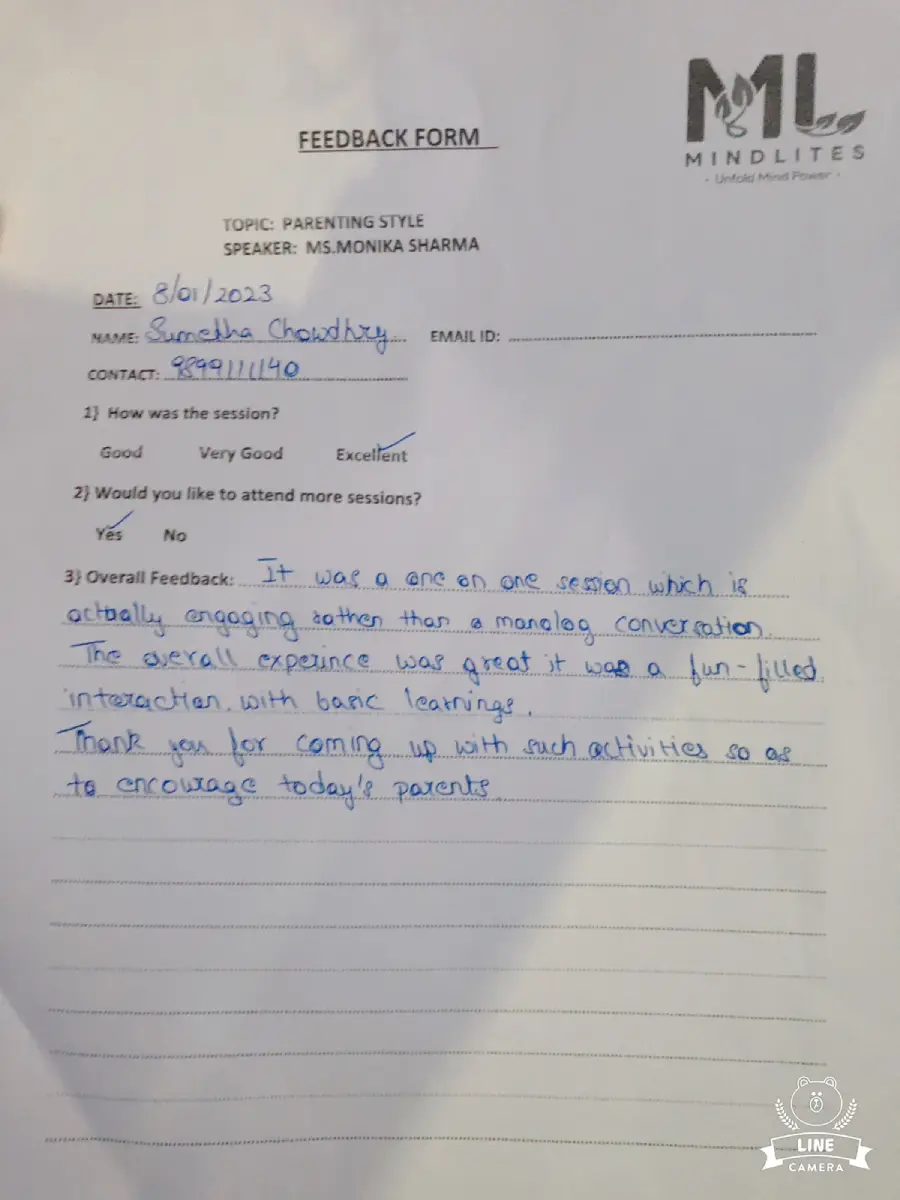 ML
MINDLITES
- Unfold Mind Power -
FEEDBACK FORM
TOPIC: PARENTING STYLE
SPEAKER: MS.MONIKA SHARMA
DATE: 8/01/2023
NAME: Sumekha Chowdhry EMAIL ID:
CONTACT: 9899111140
1} How was the session?
Good Very Good Excellent
2} Would you like to attend more sessions?
Yes No
3} Overall Feedback: It was a one on one session which is
actually engaging rather than a monolog conversation.
The overall experince was great it was a fun-filled
interaction with basic learnings.
Thank you for coming up with such activities so as
to encourage today's parents
LINE
CAMERA